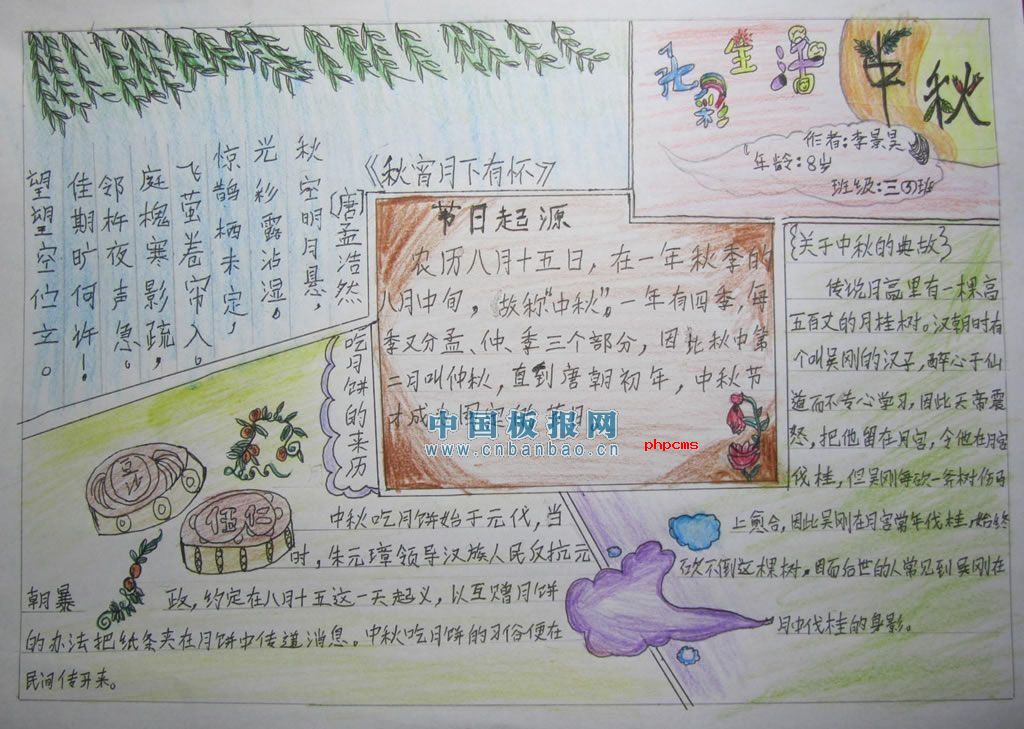 七彩生活
中秋
作者:李景昊
年龄:8岁
班级:三③班
《秋宵月下有怀》
〔唐〕孟浩然
秋空明月悬，
光彩露沾湿。
惊鹊栖未定，
飞萤卷帘入。
庭槐寒影疏，
邻杵夜声急。
佳期旷何许！
望望空伫立。
节日起源
农历八月十五日，在一年秋季的
八月中旬，故称“中秋”。一年有四季，每
季又分孟、仲、季三个部分，因此秋中第
二月叫仲秋，直到唐朝初年，中秋节
才成
中国板报网
www.cnbanbao.cn
phpcms
{关于中秋的典故}
传说月宫里有一棵高
五百丈的月桂树。汉朝时有
个叫吴刚的汉子，醉心于仙
道而不专心学习，因此天帝震
怒，把他留在月宫，令他在月宫
伐桂，但吴刚每砍一斧树伤马
上愈合，因此吴刚在月宫常年伐桂，始终
砍不倒这棵树。因而后世的人常见到吴刚在
月中伐桂的身影。
吃月饼的来历
豆沙
伍仁
中秋吃月饼始于元代，当
时，朱元璋领导汉族人民反抗元
朝暴政，约定在八月十五这一天起义，以互赠月饼
的办法把纸条夹在月饼中传道消息。中秋吃月饼的习俗便在
民间传开来。